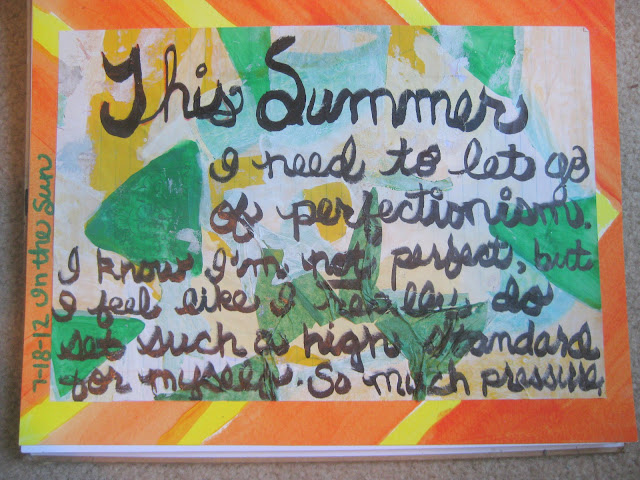 This Summer
I need to let go
of perfectionism.
I know I'm not perfect, but
I feel like I really do
set such a high standard
for myself. So much pressure,
7-18-12 In the Sun